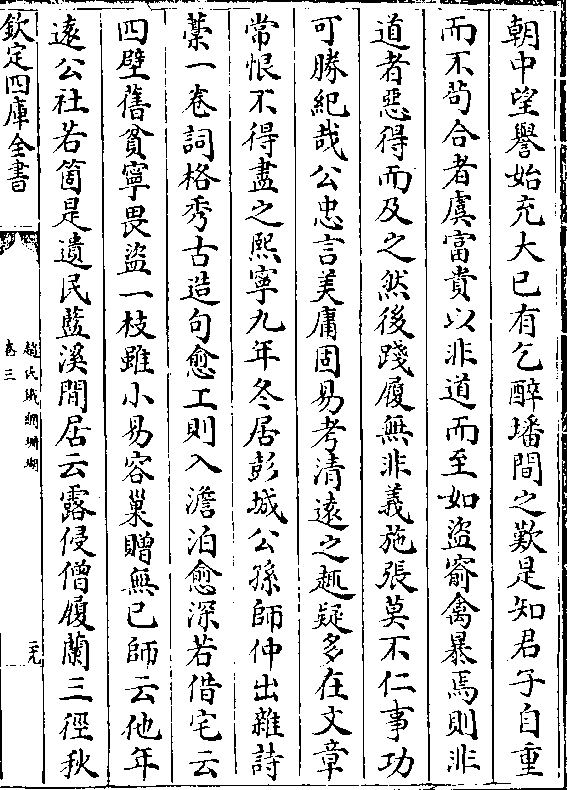 朝中望譽始充大已有乞醉墦間之歎是知君子自重
而不茍合者虞富貴以非道而至如盜竊禽暴焉則非
道者惡得而及之然後踐履無非義施張莫不仁事功
可勝紀哉公忠言美庸固易考清遠之趣疑多在文章
常恨不得盡之熙寧九年冬居彭城公孫師仲出雜詩
藁一卷詞格秀古造句愈工則入澹泊愈深若借宅云
四壁舊貧寧畏盜一枝雖小易容巢贈無已師云他年
遠公社若箇是遺民藍溪閒居云露侵僧履蘭三徑秋
欽定四庫全書
趙氏鐵網珊瑚
卷三
二九